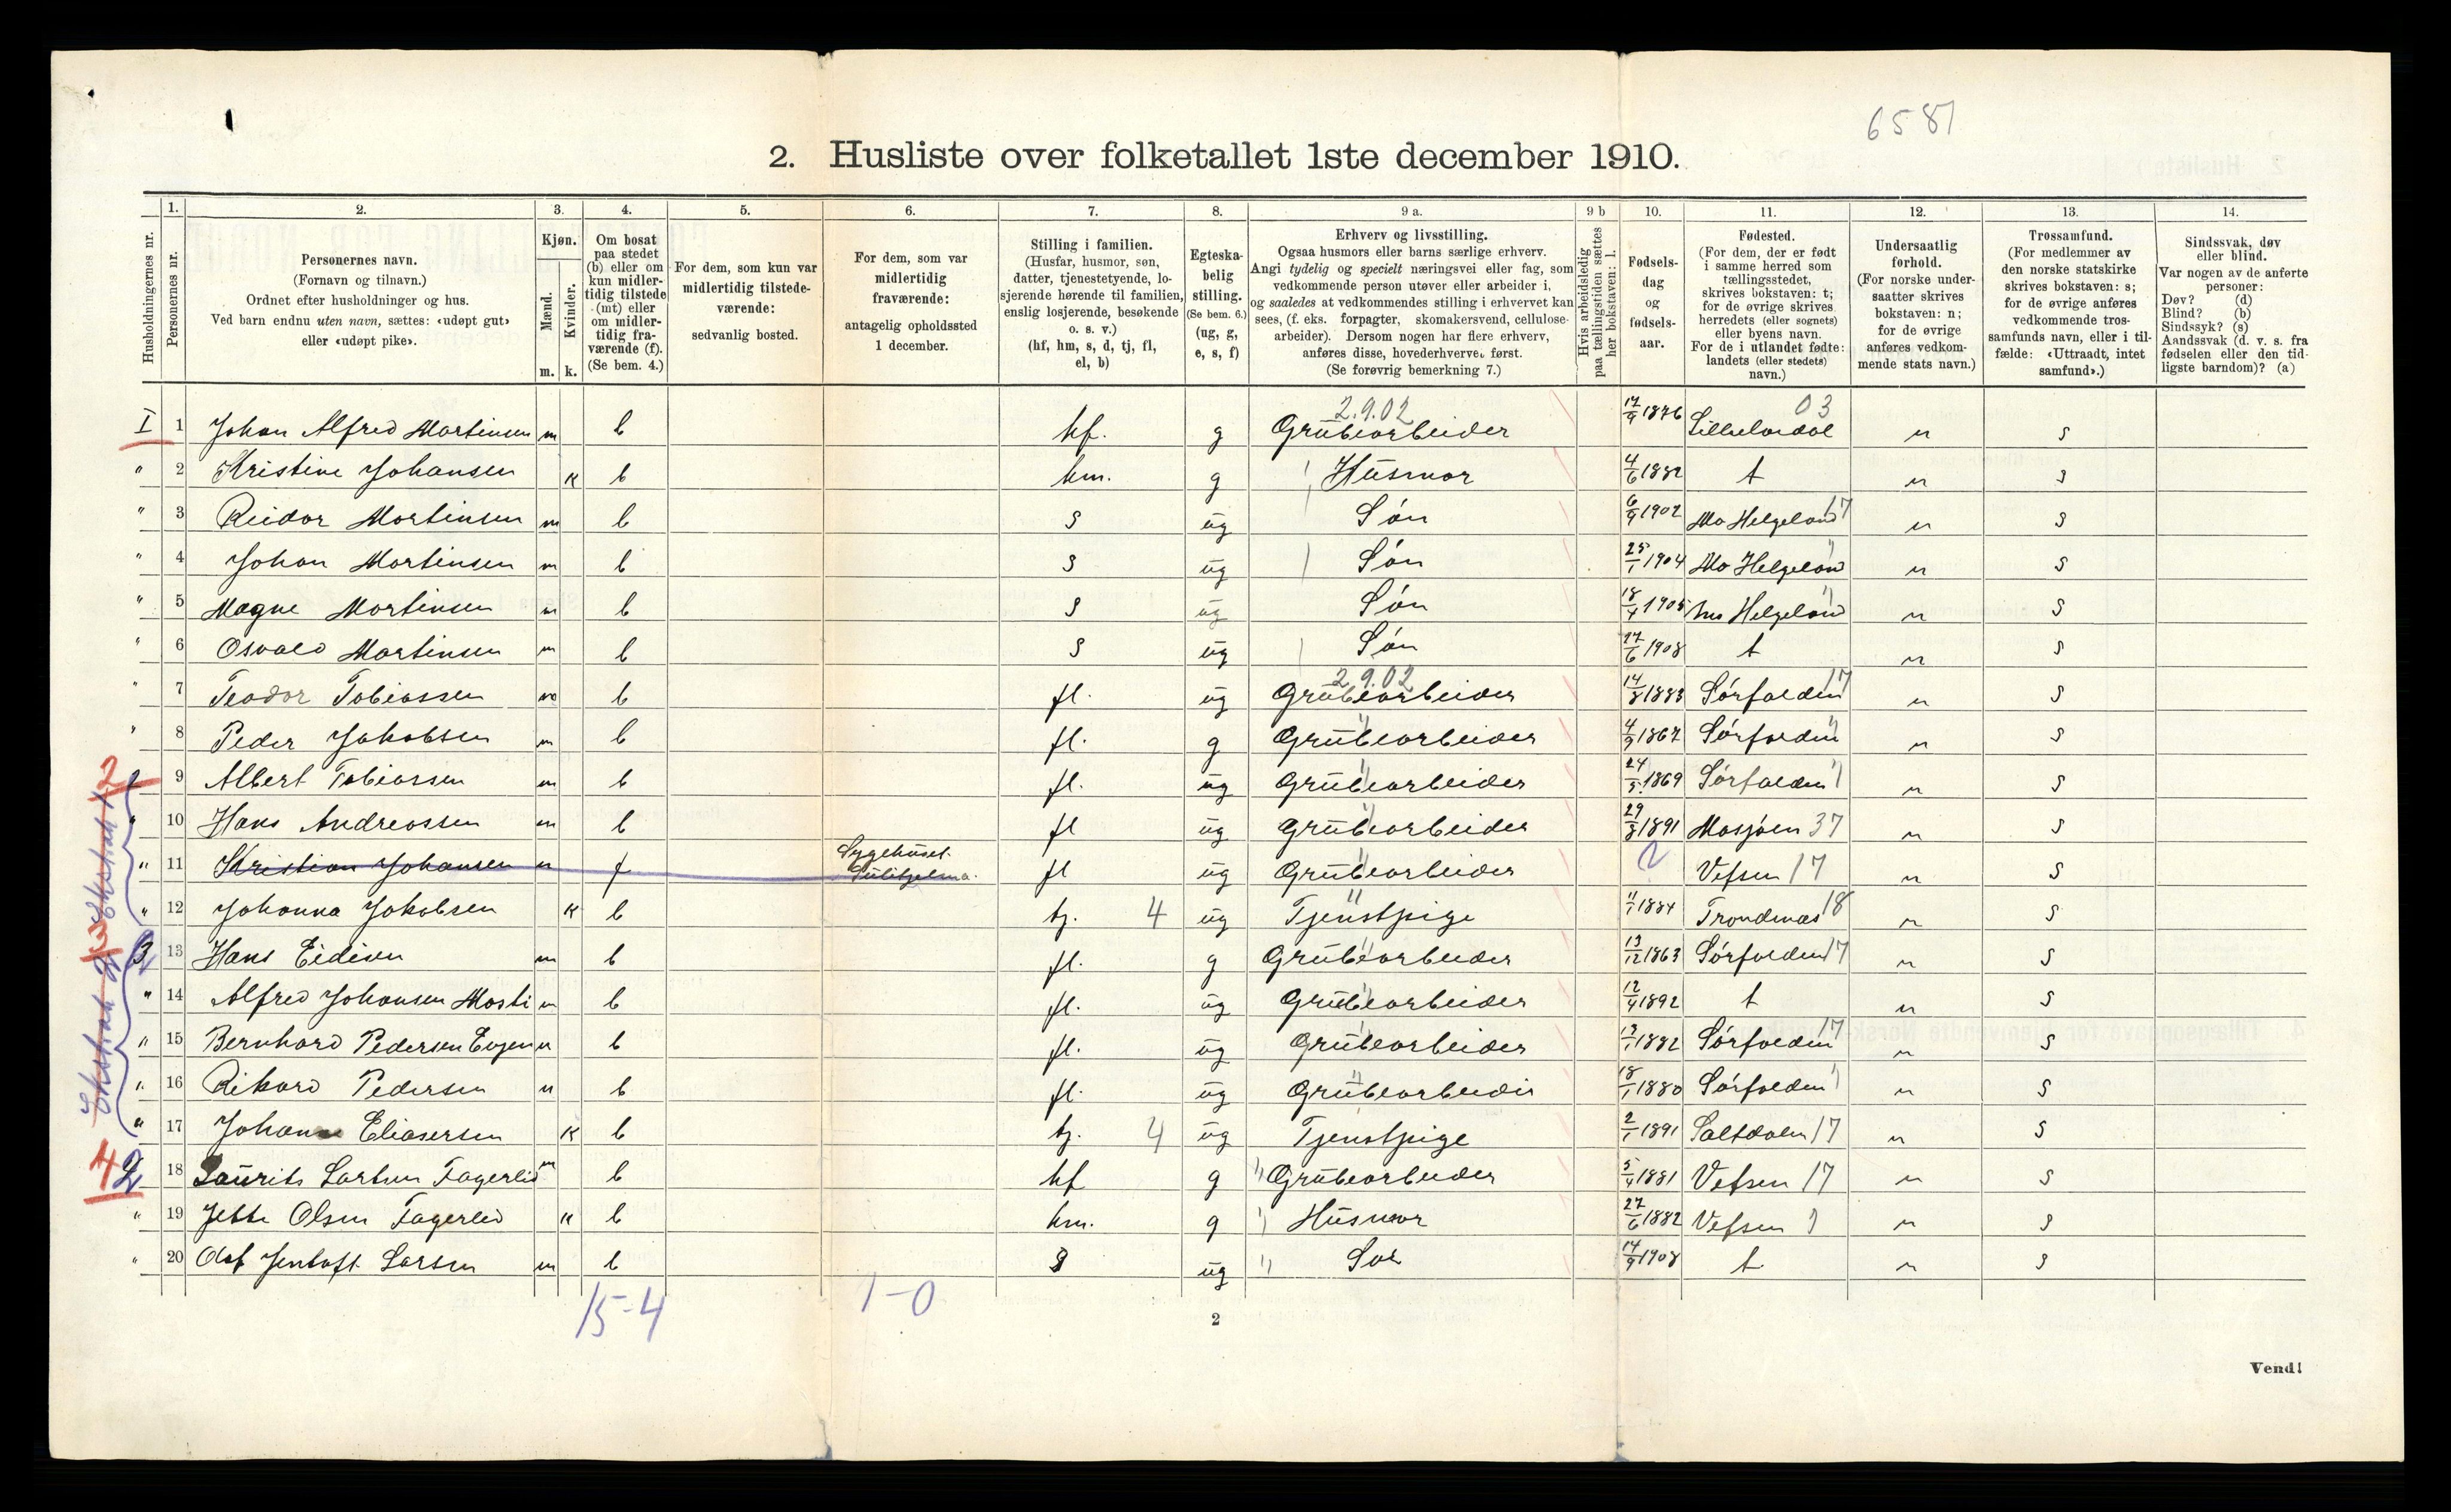 6581
2. Husliste over folketallet 1ste december 1910.
Husholdningernes nr.
1. Personernes nr.
2. Personernes navn.
(Fornavn og tilnavn.)
Ordnet efter husholdninger og hus.
Ved barn endnu uten navn, sættes: «udøpt gut»
eller «udøpt pike».
3. Kjøn.
Mænd. m.
Kvinder. k.
4. Om bosat
paa stedet
(b) eller om
kun midler-
tidig tilstede
(mt) eller
om midler-
tidig fra-
værende (f).
(Se bem. 4.)
5. For dem, som kun var
midlertidig tilstede-
værende:
sedvanlig bosted.
6. For dem, som var
midlertidig
fraværende:
antagelig opholdssted
1 december.
7. Stilling i familien.
(Husfar, husmor, søn,
datter, tjenestetyende, lo-
sjerende hørende til familien,
enslig losjerende, besøkende
o. s. v.)
(hf, hm, s, d, tj, fl,
el, b)
8. Egteska-
belig
stilling.
(Se bem. 6.)
(ug, g,
e, s, f)
9 a. Erhverv og livsstilling.
Ogsaa husmors eller barns særlige erhverv.
Angi tydelig og specielt næringsvei eller fag, som
vedkommende person utøver eller arbeider i,
og saaledes at vedkommendes stilling i erhvervet kan
sees, (f. eks. forpagter, skomakersvend, cellulose-
arbeider). Dersom nogen har flere erhverv,
anføres disse, hovederhvervet først.
(Se forøvrig bemerkning 7.)
9 b Hvis arbeidsledig
paa tællingstiden sættes
her bokstaven: l.
10. Fødsels-
dag
og
fødsels-
aar.
11. Fødested.
(For dem, der er født
i samme herred som
tællingsstedet,
skrives bokstaven: t;
for de øvrige skrives
herredets (eller sognets)
eller byens navn.
For de i utlandet fødte:
landets (eller stedets)
navn.)
12. Undersaatlig
forhold.
(For norske under-
saatter skrives
bokstaven: n;
for de øvrige
anføres vedkom-
mende stats navn.)
13. Trossamfund.
(For medlemmer av
den norske statskirke
skrives bokstaven: s;
for de øvrige anføres
vedkommende tros-
samfunds navn, eller i til-
fælde: «Uttraadt, intet
samfund».)
14. Sindssvak, døv
eller blind.
Var nogen av de anførte
personer:
Døv? (d)
Blind? (b)
Sindssyk? (s)
Aandssvak (d. v. s. fra
fødselen eller den tid-
ligste barndom)? (a)
2.9.02 03
I 1 Johan Alfred Martinsen m b hf. g Grubearbeider 17/9 1876 Lilleelvedal n s
" 2 Kristine Johansen K b hm. g Husmor 4/6 1882 t n s
" 3 Reidar Martinsen m b s ug Søn 6/9 1902 Mo Helgeland 17 n s
" 4 Johan Martinsen m b s ug Søn 25/1 1904 Mo Helgeland " n s
" 5 Magne Martinsen m b s ug Søn 18/4 1905 Mo Helgeland " n s
" 6 Osvald Martinsen m b s ug Søn 27/6 1908 t n s
2.9.02
" 7 Teodor Tobiassen m b fl. ug Grubearbeider 14/8 1883 Sørfolden 17 n s
" 8 Peder Jakobsen m b fl. g Grubearbeider 4/9 1867 Sørfolden " n s
9 Albert Tobiassen m b fl. ug Grubearbeider 24/5 1869 Sørfolden " n s
" 10 Hans Andreassen m b fl ug Grubearbeider 29/8 1891 Mosjøen 37 n s
" 11 Kristian Johansen m f Sygehuset. Sulitjelma. fl ug Grubearbeider Vefsen 17 n s
" 12 Johanna Jakobsen K b tj. 4 ug Tjenstpige 11/1 1884 Trondenæs 18 n s
3 13 Hans Eidisen m b fl. g Grubearbeider 13/12 1863 Sørfolden 17 n s
" 14 Alfred Johansen Mosti m b fl. ug Grubearbeider 12/4 1892 t n s
" 15 Bernhard Pedersen Evjen m b fl. ug Grubearbeider 13/1 1882 Sørfolden 17 n s
" 16 Rikard Pedersen m b fl. ug Grubearbeider 18/1 1880 Sørfolden " n s
" 17 Johanne Eliasersen K b tj. 4 ug Tjenstpige 2/1 1891 Saltdalen 17 n s
4 2 18 Laurits Larsen Fagerlid m b hf g " Grubearbeider 5/4 1881 Vefsen 17 n s
" 19 Jette Olsen Fagerlid K b hm. g " Husmor 27/6 1882 Vefsen " n s
" 20 Olaf Jentoft Larsen m b s ug " Søn 14/9 1908 t n s
15-4 1-0
2
Vend!